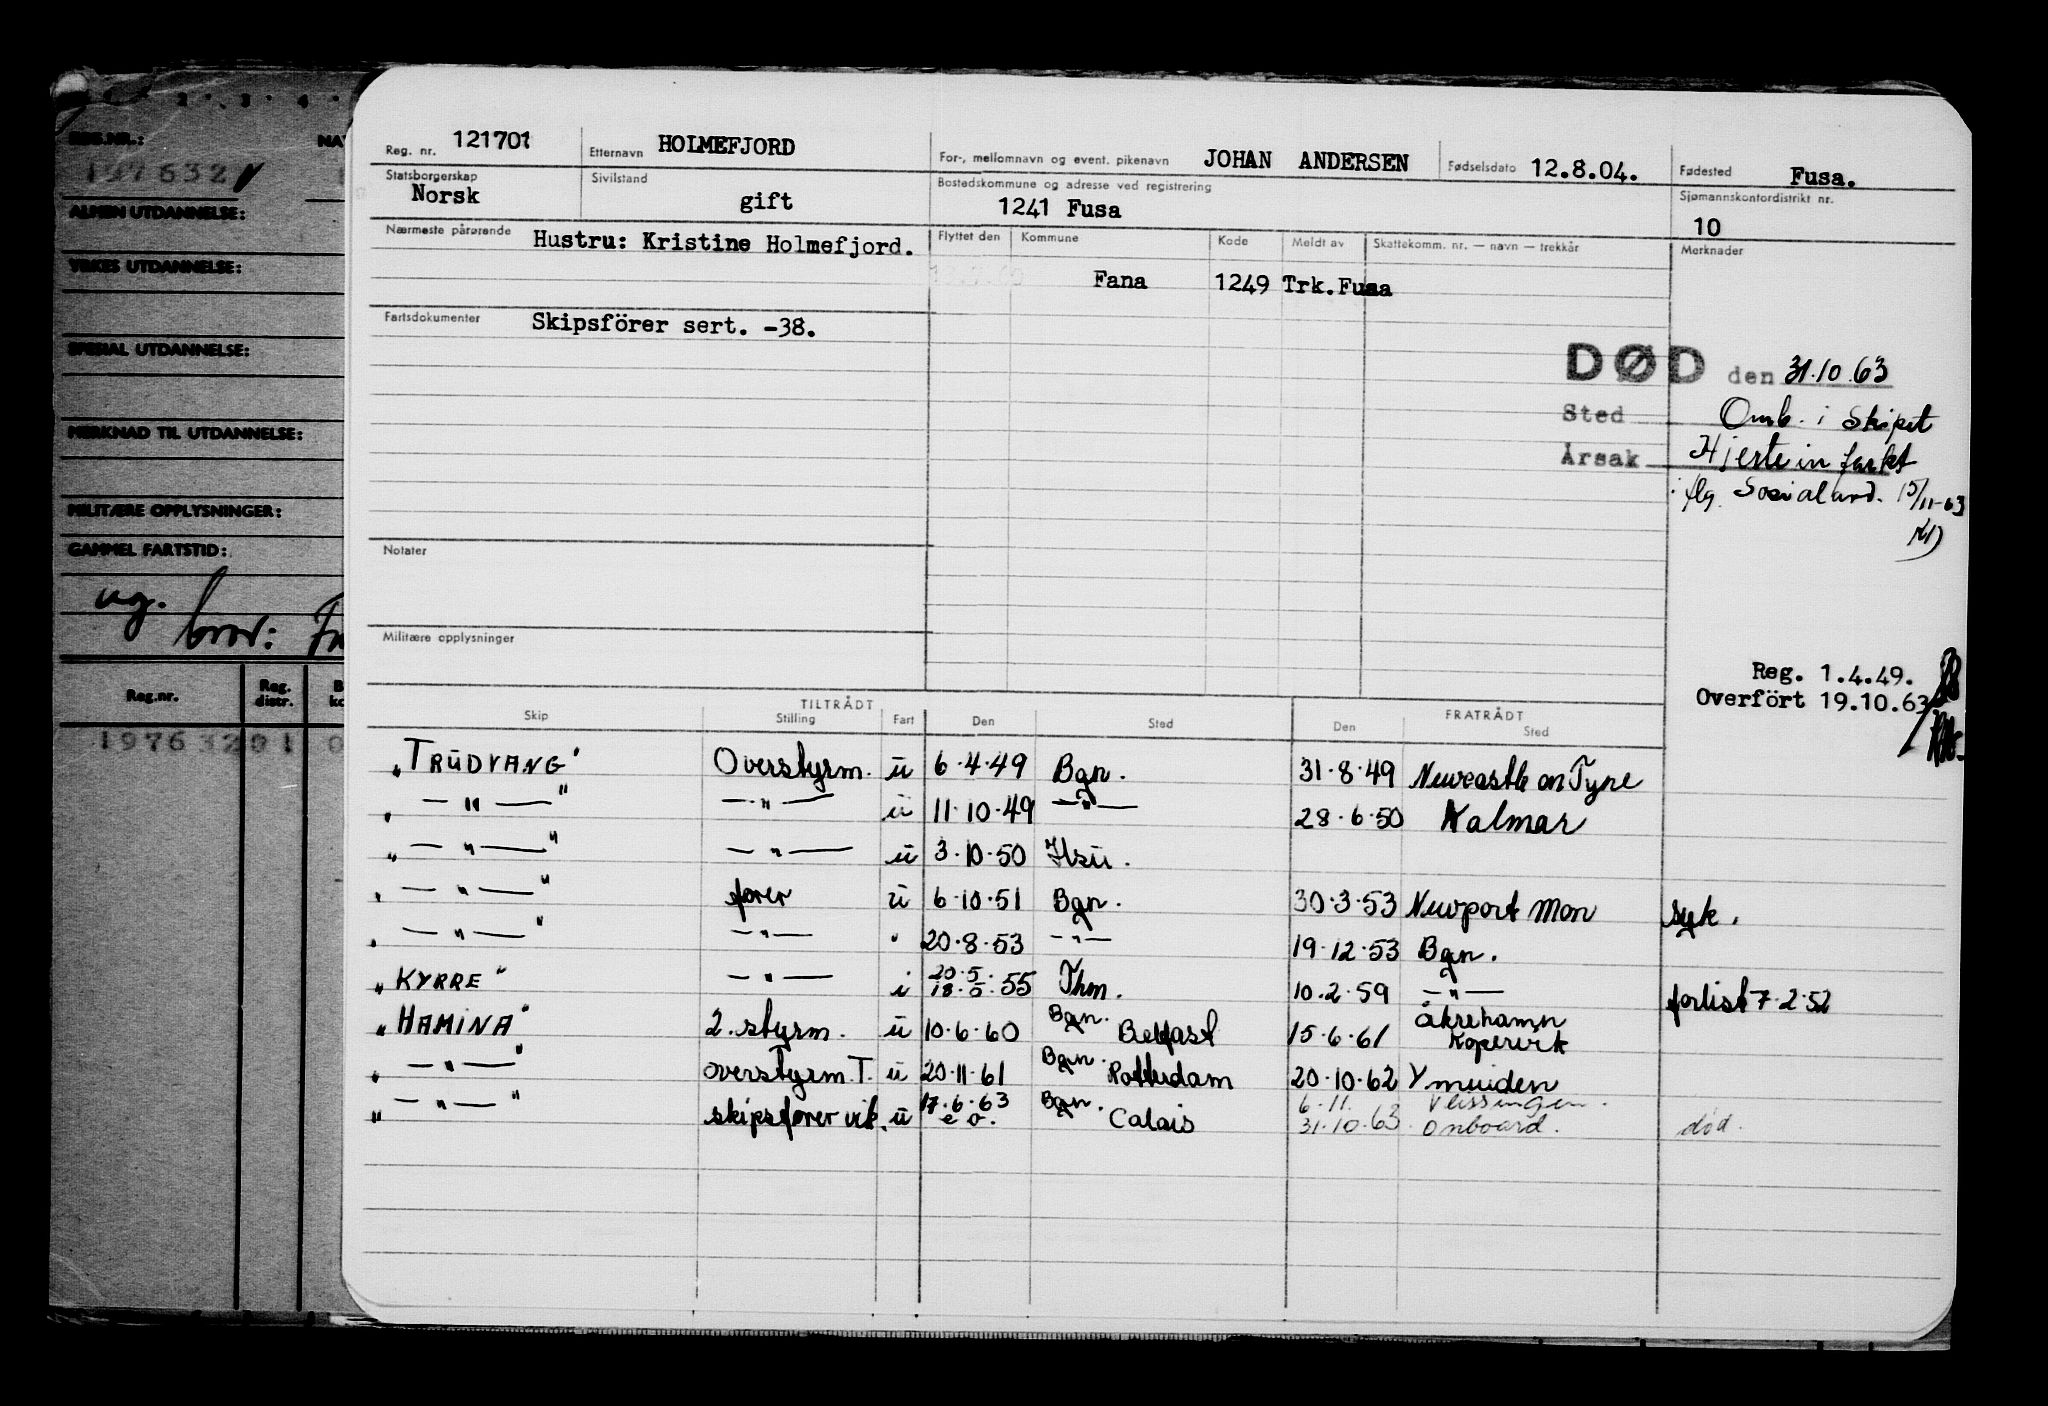 2 . 3 . 4
REG.NR.:
197632
ALMEN UTDANNELSE:
YRKES UTDANNELSE:
SPESIAL UTDANNELSE:
MERKNAD TIL UTDANNELSE:
MILITÆRE OPPLYSNINGER:
GAMMEL FARTSTID:
ug.
bror:
Reg.nr. Reg. distr.
197632 01 0
Reg. nr. 121701 Etternavn HOLMEFJORD For-, mellomnavn og event. pikenavn JOHAN ANDERSEN Fødselsdato 12.8.04. Fødested Fusa.
Statsborgerskap Norsk Sivilstand gift Bostedskommune og adresse ved registrering 1241 Fusa Sjømannskontordistrikt nr. 10
Nærmeste pårørende Hustru: Kristine Holmefjord. Flyttet den Kommune Kode Meldt av Skattekomm. nr. — navn — trekkår Merknader
Fana 1249 Trk.Fusa
Fartsdokumenter Skipsförer sert. -38.
DØD den 31.10.63
Sted Omb. i skipet
Årsak Hjerteinfarkt
iflg. Sosialavd. 15/11-63
Notater
Militære opplysninger
Reg. 1.4.49.
Overfört 19.10.63
TILTRÅDT FRATRÅDT
Skip Stilling Fart Den Sted Den Sted
"TRUDVANG" Overstyrm. ü 6.4.49 Bgn. 31.8.49 Newcastle on Tyne
" — " — " — " — ü 11.10.49 — " — 28.6.50 Kalmar
" — " — " — " — ü 3.10.50 Hsü.
" — " — " fører ü 6.10.51 Bgn. 30.3.53 Newport Mon syk.
" — " — " — " — " 20.8.53 — " — 19.12.53 Bgn.
"KYRRE" — " — i 20.5. 18.5.55 Thm. 10.2.59 — " — forlist 7.2.52
"HAMINA" 2. styrm. ü 10.6.60 Bgn. Belfast 15.6.61 Åkrehamn Kopervik
" — " — " overstyrm. T. ü 20.11.61 Bgn. Rotterdam 20.10.62 Ymuiden
" — " — " skipsfører vik. ü 17.6.63 e o. Bgn. Calais 6.11. Vlissingen. 31.10.63 onboard. død.